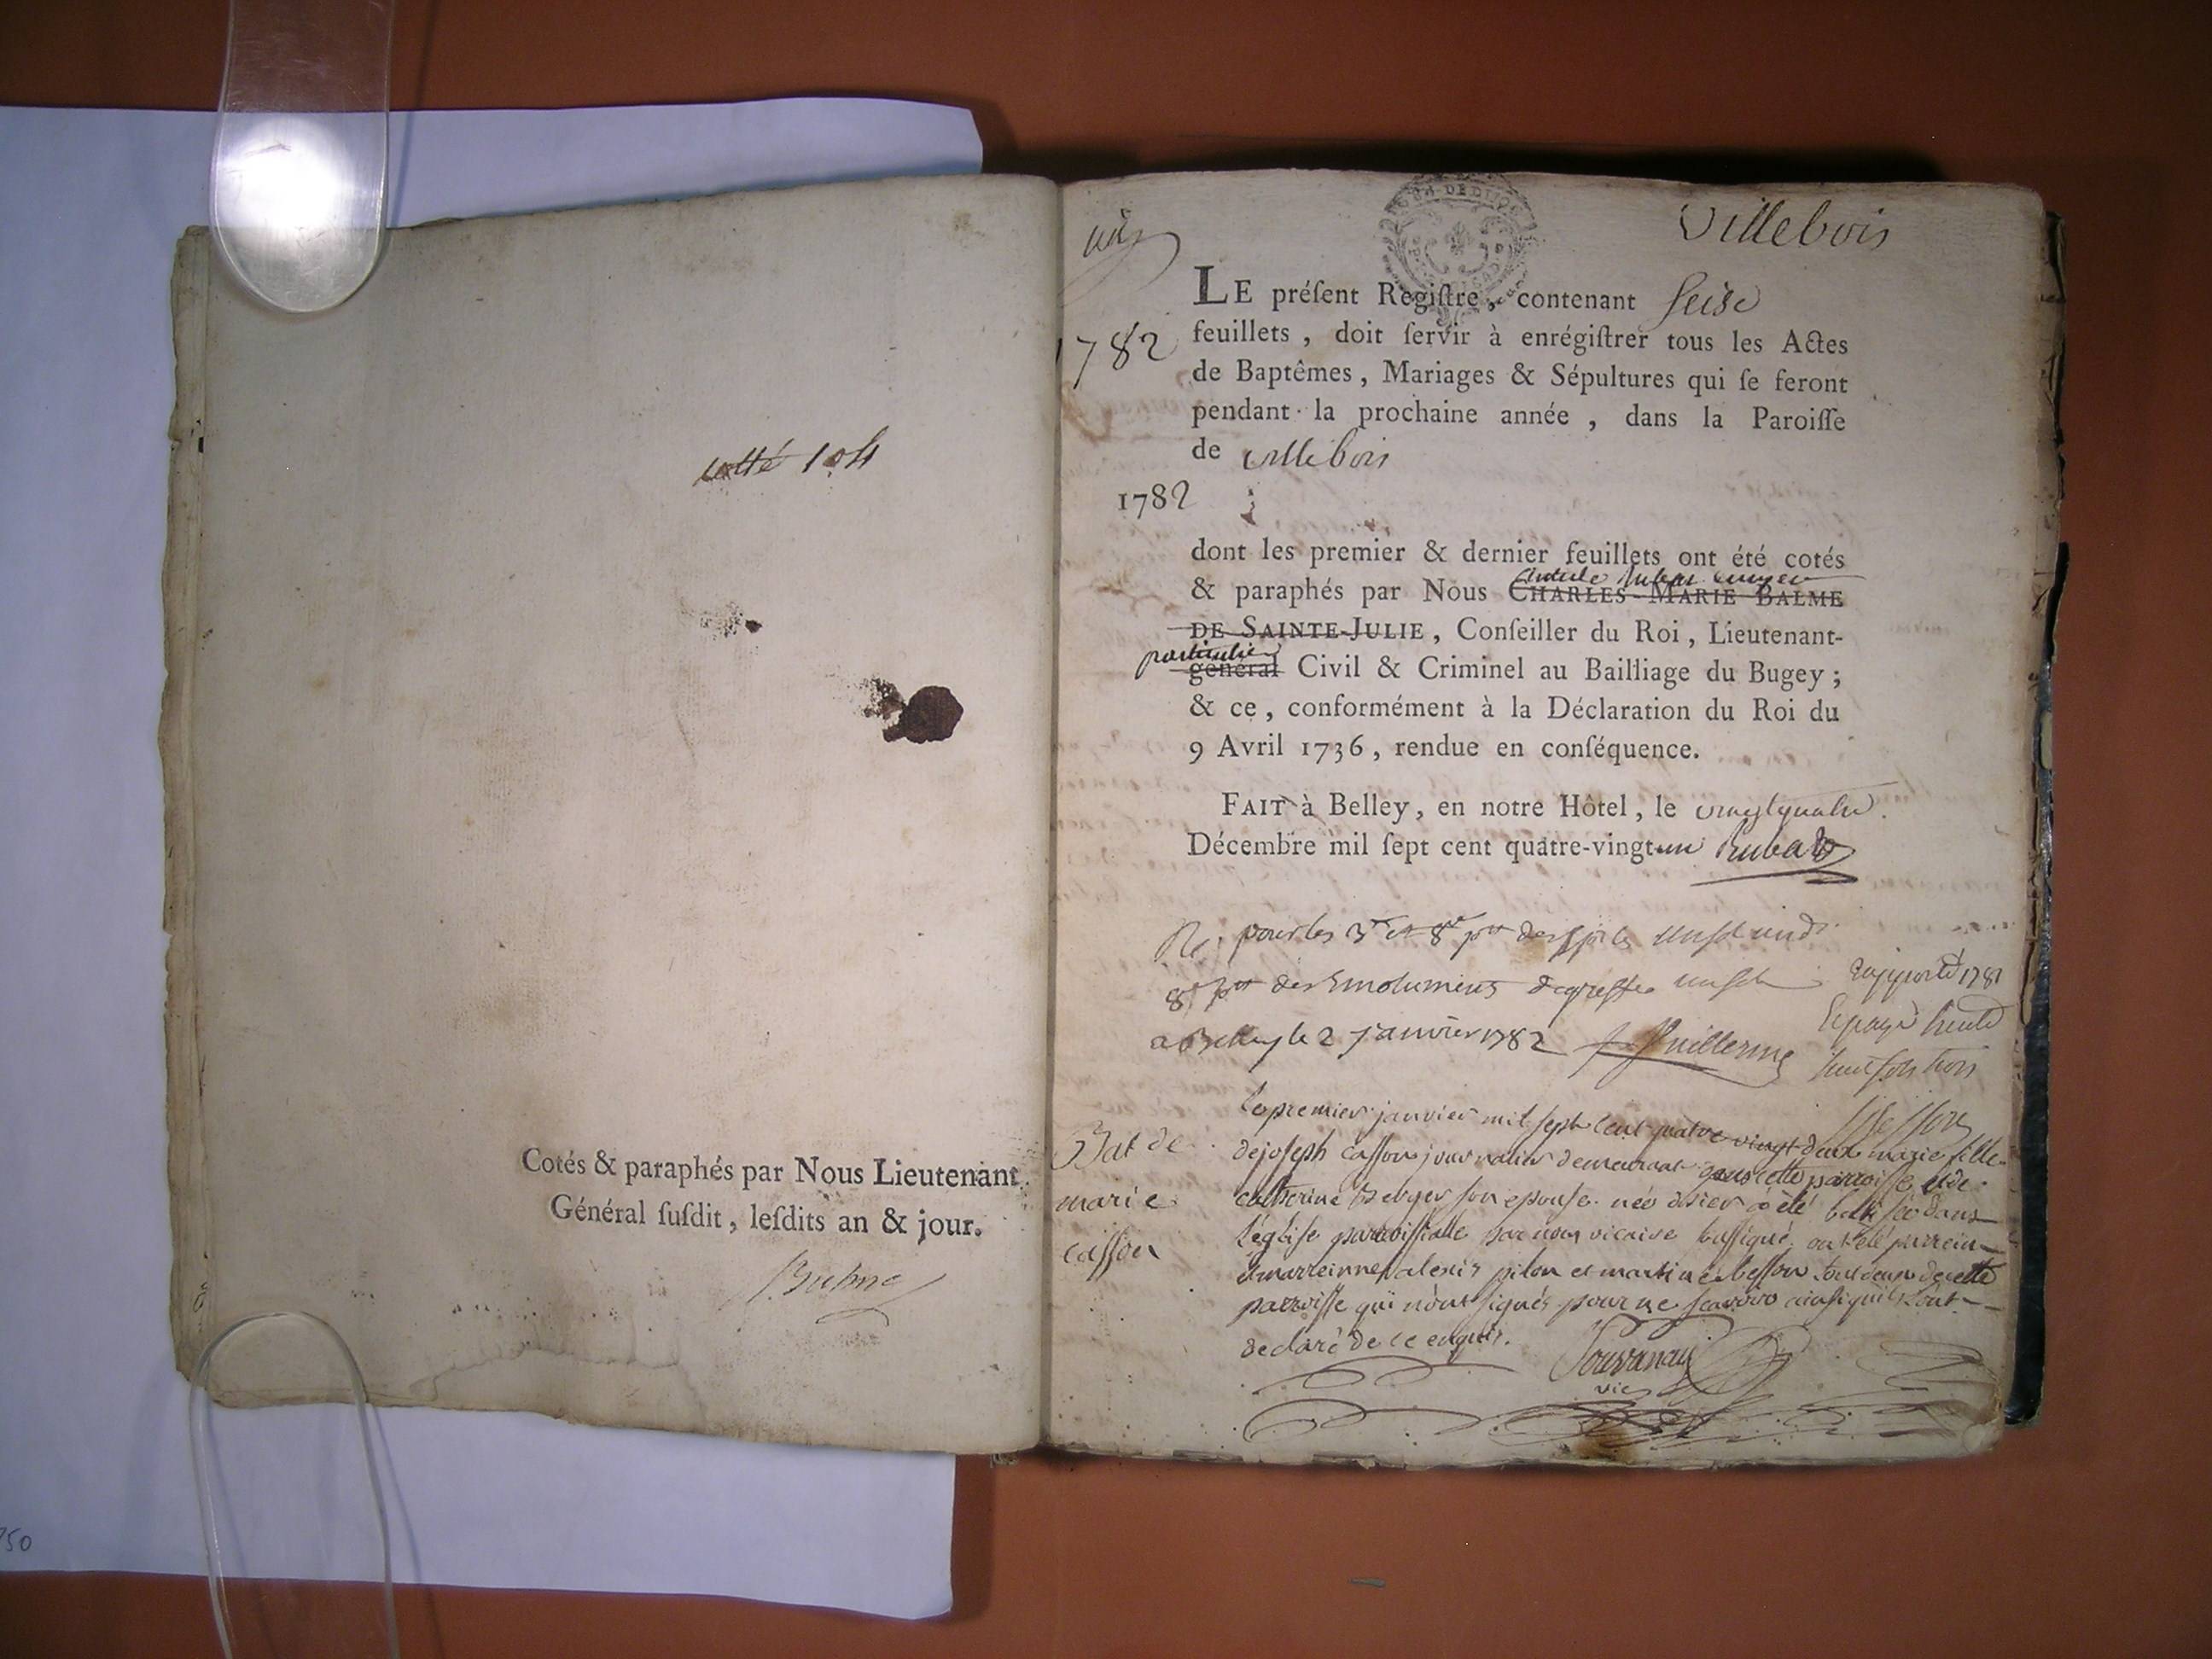 cotté 104
Cotés & paraphés par Nous Lieutenant
Général ſuſdit, leſdits an & jour.
Balme
Villebois
LE préſent Regiſtre, contenant ſeise
1782
feuillets, doit ſervir à enrégiſtrer tous les Actes
de Baptêmes, Mariages & Sépultures qui ſe feront
pendant la prochaine année, dans la Paroiſſe
de villebois
1782
dont les premier & dernier feuillets ont été cotés
& paraphés par Nous CHARLES-MARIE BALME
DE SAINTE-JULIE, Conſeiller du Roi, Lieutenant-
particulier
général Civil & Criminel au Bailliage du Bugey ;
& ce, conformément à la Déclaration du Roi du
9 Avril 1736, rendue en conſéquence.
FAIT à Belley, en notre Hôtel, le vingtquatre
Décembre mil ſept cent quatre-vingt-un Rubat
pour les 3 et 8
8 des Emoluments
a Belley le 2 Janvier 1782 Guillerme
Rapporté 1781
Le premier janvier mil sept cent quatre vingt deux marie fille
Bat de
de joseph casson journalier demeurant dans cette parroisse et de
marie
catherine berger son epouse née d'hier a été batisée dans
casson
l'église parroissialle par nous vicaire soussigné ont été parrein
et marreinne alexis pilon et martine besson tout deux de cette
parroisse qui n'ont signés pour ne scavoir ainsi qu'ils l'ont
declaré de ce enquis.
vic